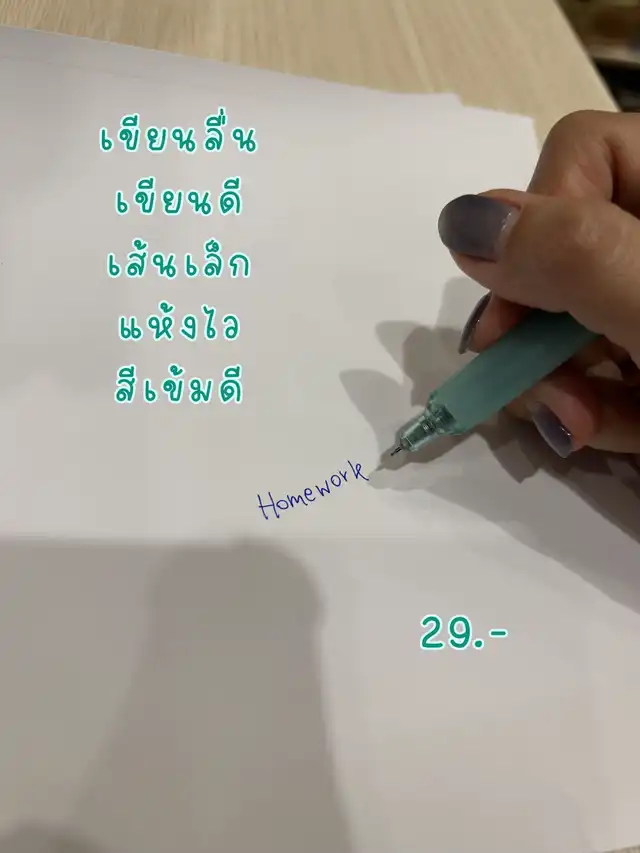 เขียนลื่น
เขียนดี
เส้นเล็ก
แห้งไว
สีเข้มดี
Homework
29.-